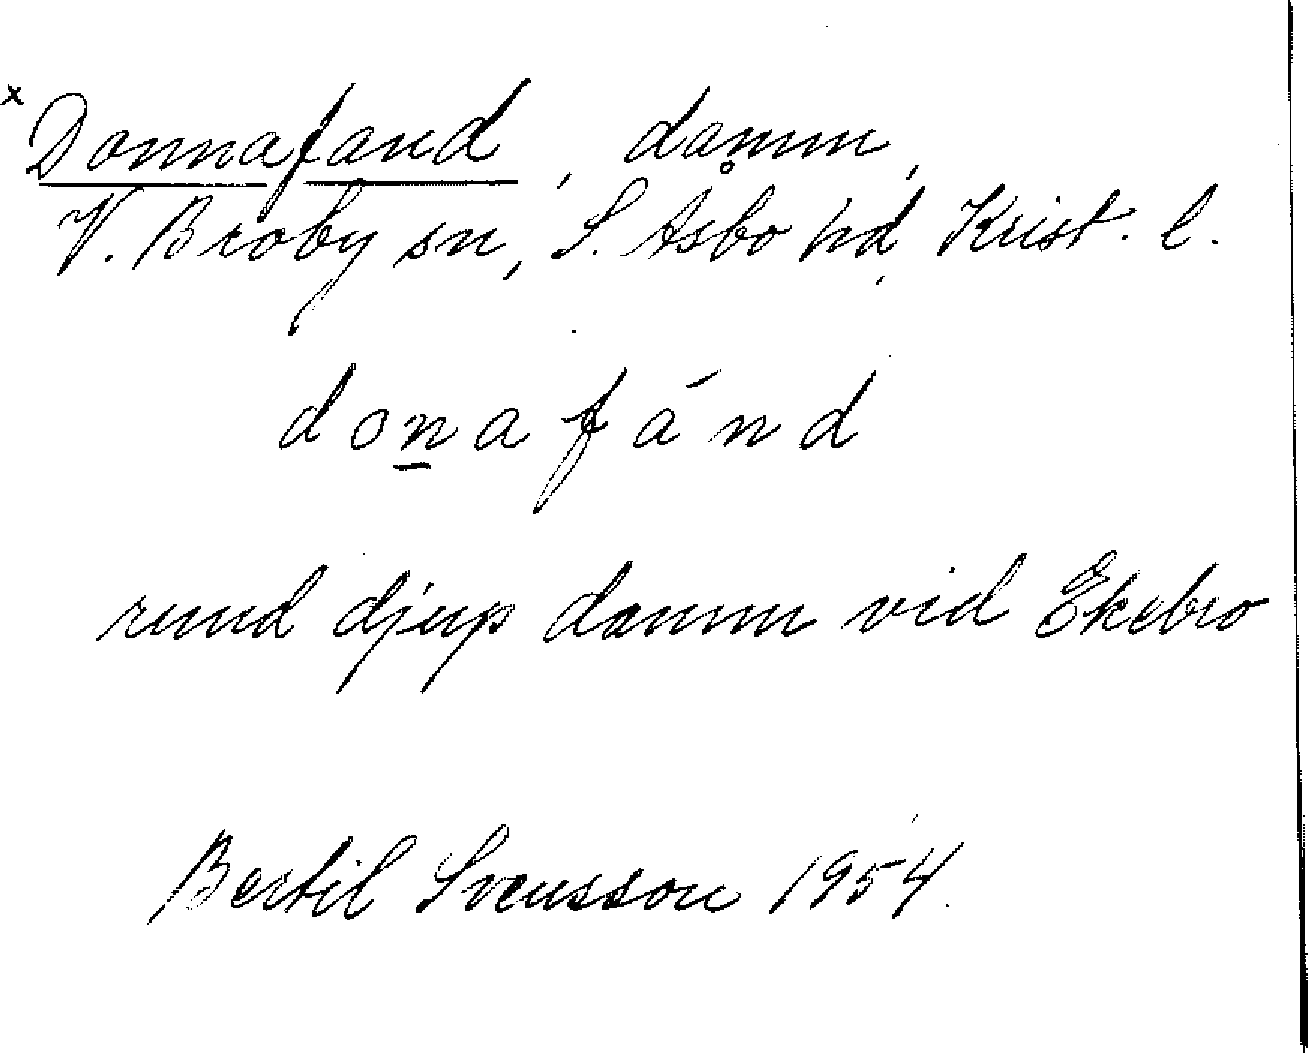 x Donnafand, damm,
V. Broby sn, S. Åsbo hd, Krist. l.
donafánd
rund djup damm vid Ekebro
Bertil Svensson 1954.